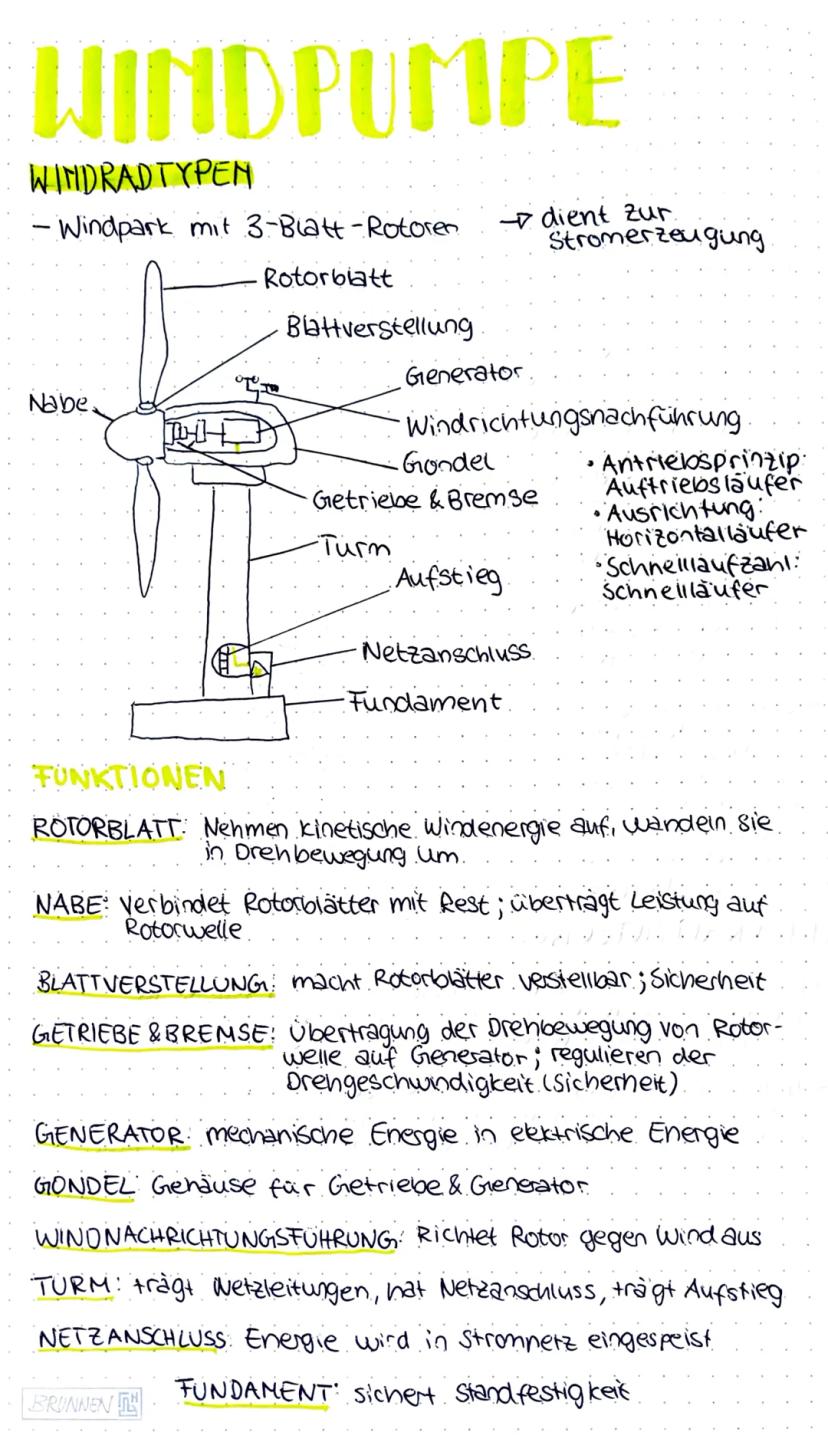 WINDPUMPE
WINDRADTYPEN
- Windpark mit 3-Blatt-Rotoren → dient zur
Stromerzeugung
Rotorblatt
Blattverstellung
Generator
Nabe
Windrichtungsnachführung
Gondel
Getriebe & Bremse
• Antriebsprinzip:
Auftriebsläufer
• Ausrichtung:
Horizontalläufer
• Schnelllaufzahl:
Schnellläufer
Turm
Aufstieg
Netzanschluss
Fundament
FUNKTIONEN
ROTORBLATT: Nehmen kinetische Windenergie auf, wandeln sie
in Drehbewegung um
NABE: verbindet Rotorblätter mit Rest; überträgt Leistung auf
Rotorwelle
BLATTVERSTELLUNG: macht Rotorblätter verstellbar; Sicherheit
GETRIEBE & BREMSE: Übertragung der Drehbewegung von Rotor-
welle auf Generator; regulieren der
Drehgeschwindigkeit (Sicherheit)
GENERATOR: mechanische Energie in elektrische Energie
GONDEL: Gehäuse für Getriebe & Generator
WINDNACHRICHTUNGSFÜHRUNG: Richtet Rotor gegen Wind aus
TURM: trägt Netzleitungen, hat Netzanschluss, trägt Aufstieg
NETZANSCHLUSS: Energie wird in Stromnetz eingespeist
FUNDAMENT: sichert Standfestigkeit
BRUNNEN